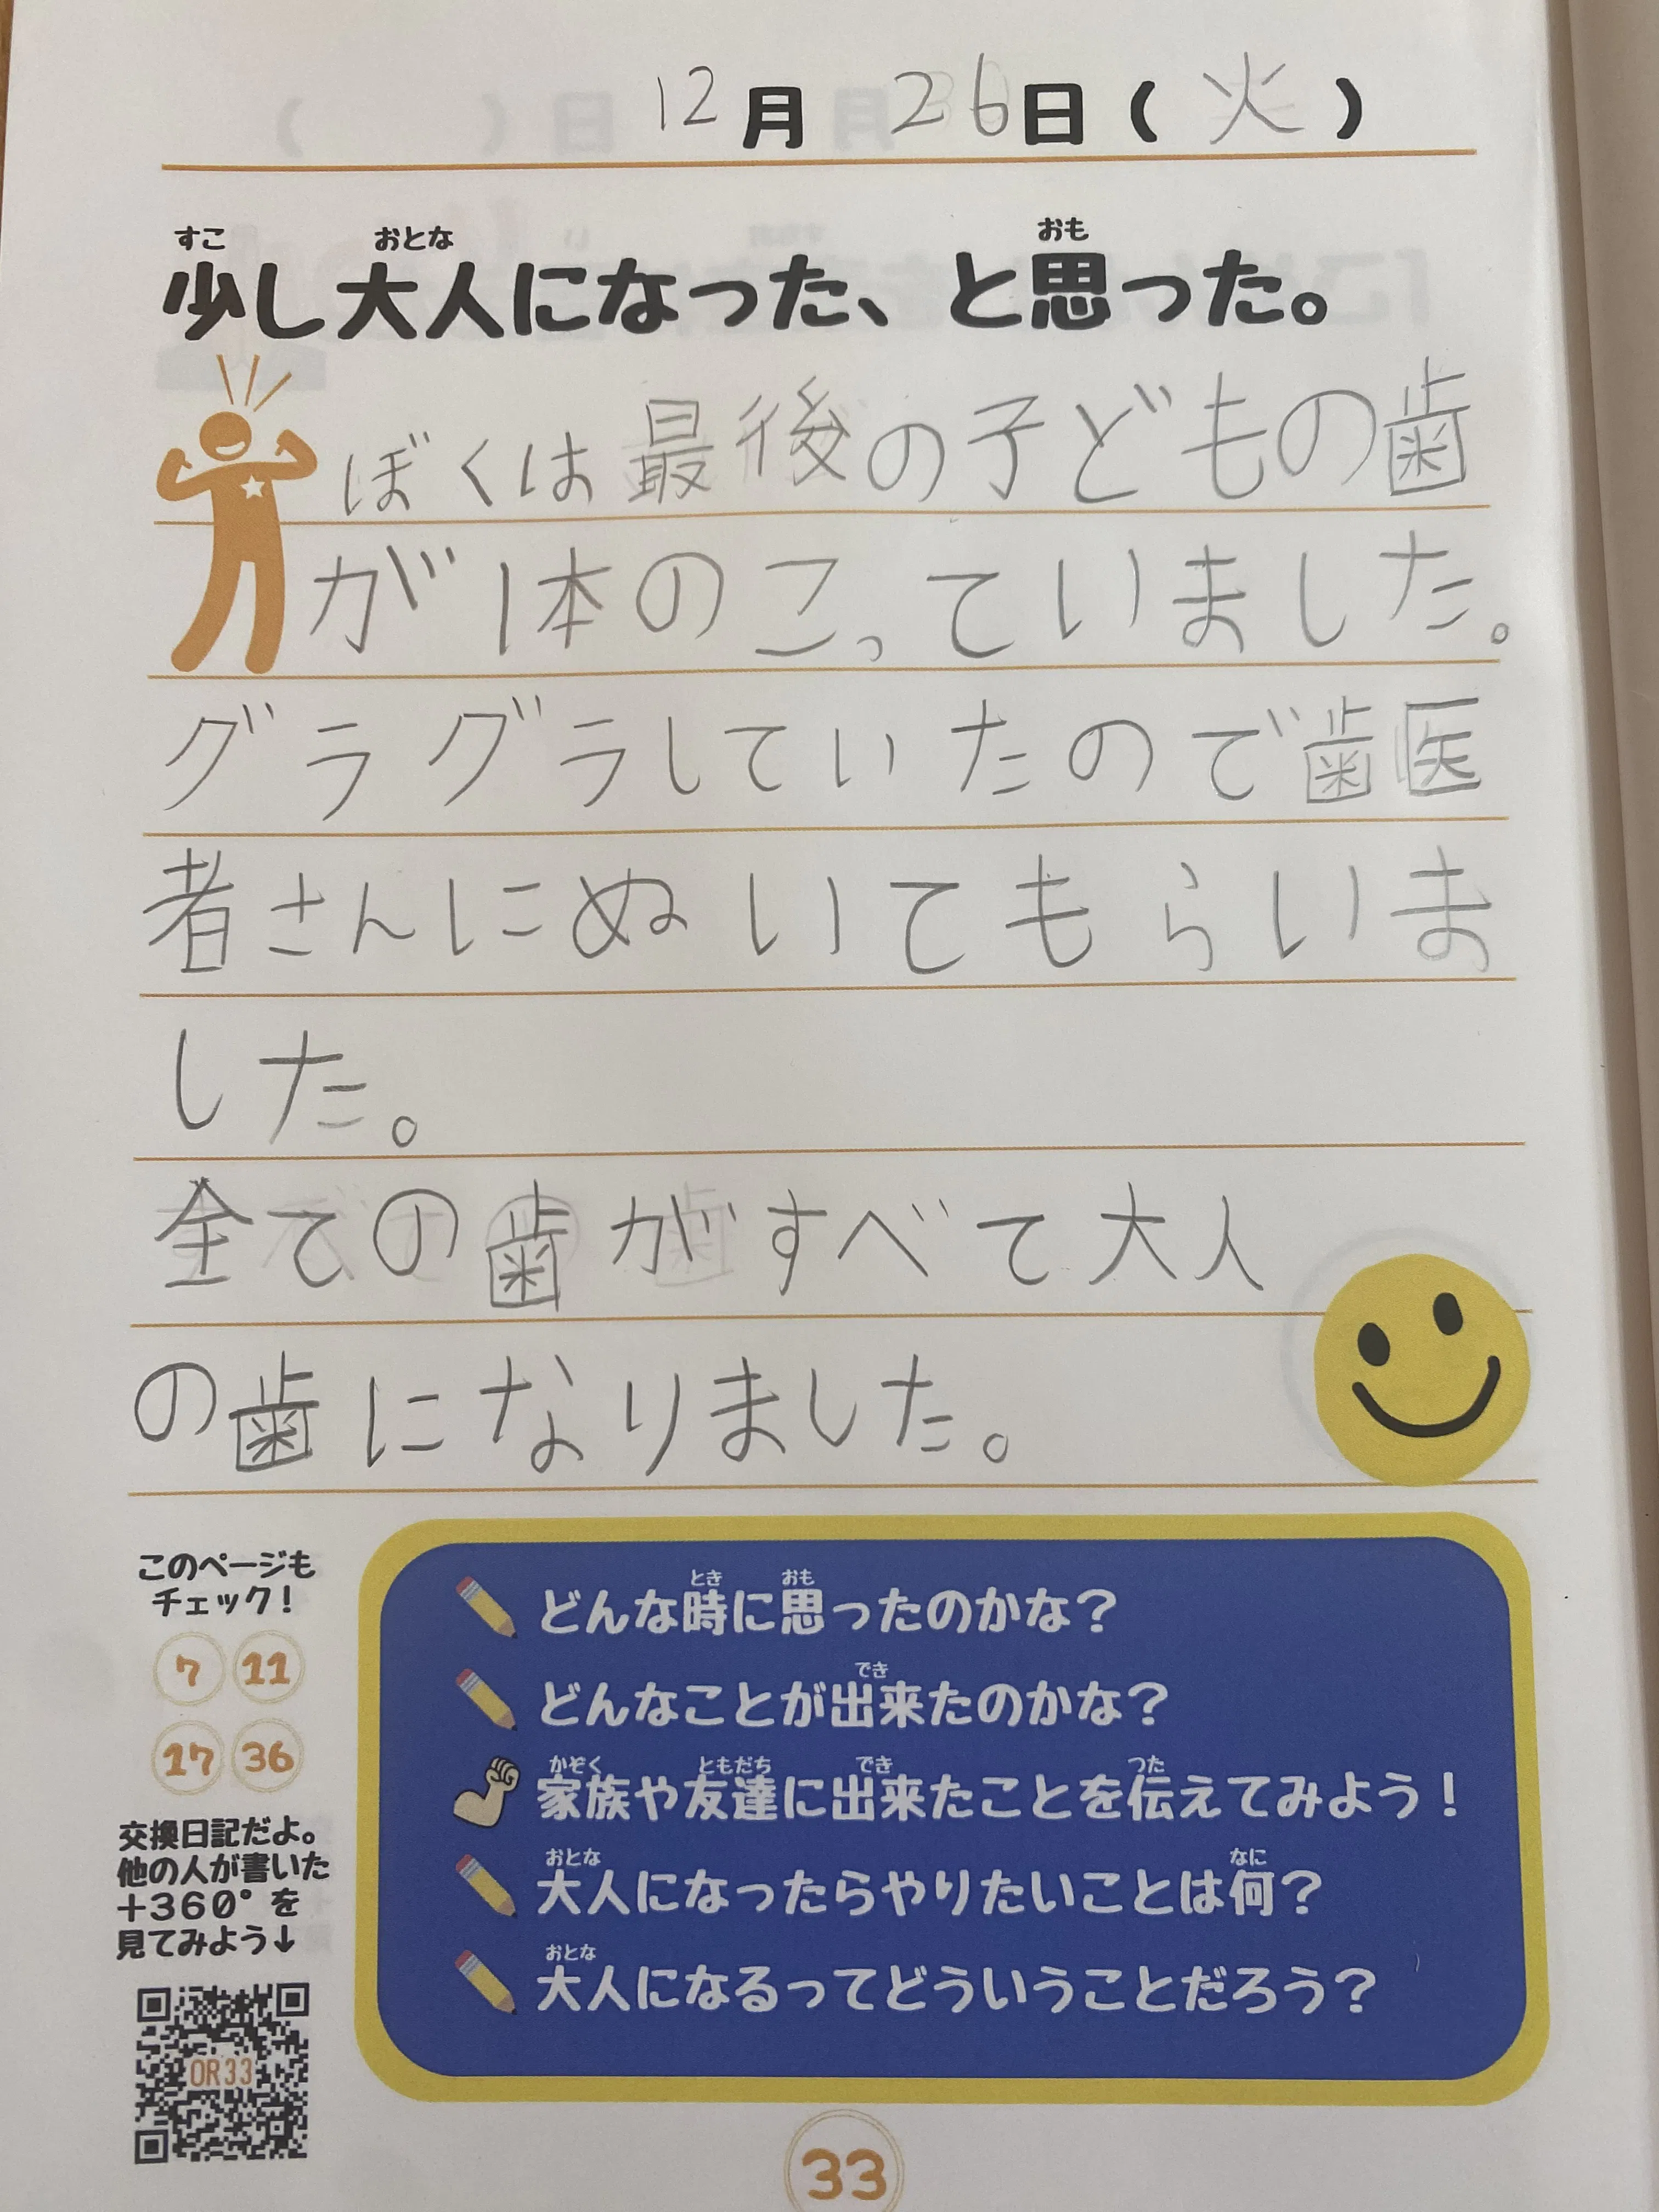 12月26日(火)
すこ おとな おも
少し大人になった、と思った。
ぼくは最後の子どもの歯
が1本のこっていました。
グラグラしていたので歯医
者さんにぬいてもらいま
した。
全ての歯がすべて大人
の歯になりました。
このページも
チェック!
7 11
17 36
交換日記だよ。
他の人が書いた
+360°を
見てみよう↓
OR33
とき おも
どんな時に思ったのかな?
でき
どんなことが出来たのかな?
かぞく ともだち でき つた
家族や友達に出来たことを伝えてみよう!
おとな なに
大人になったらやりたいことは何?
おとな
大人になるってどういうことだろう?
33